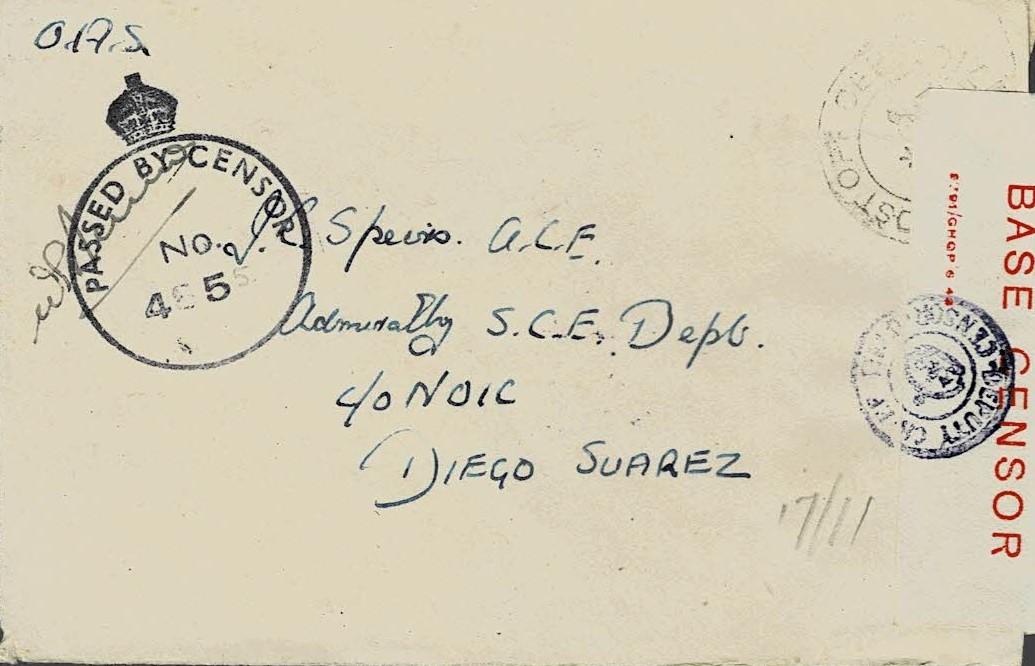 O.A.S.
PASSED BY CENSOR
NO.
4855
Speirs. A.C.E.
Admiralty S.C.E. Dept.
c/o NOIC
DIEGO SUAREZ
17/11
POST OFF
BASE CENSOR
DEPUTY CHIEF CENSOR